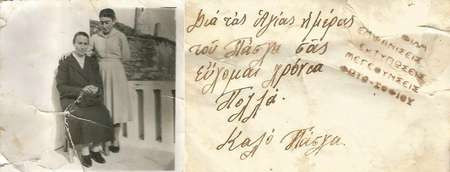 Διὰ τὰς Ἁγίας ἡμέρας
τοῦ Πάσχα σᾶς
εὔχομαι χρόνια
Πολλά.
Καλό Πάσχα.
ΦΙΛΜ
ΕΜΦΑΝΙΣΕΙΣ
ΕΚΤΥΠΩΣΕΙΣ
ΜΕΓΕΘΥΝΣΕΙΣ